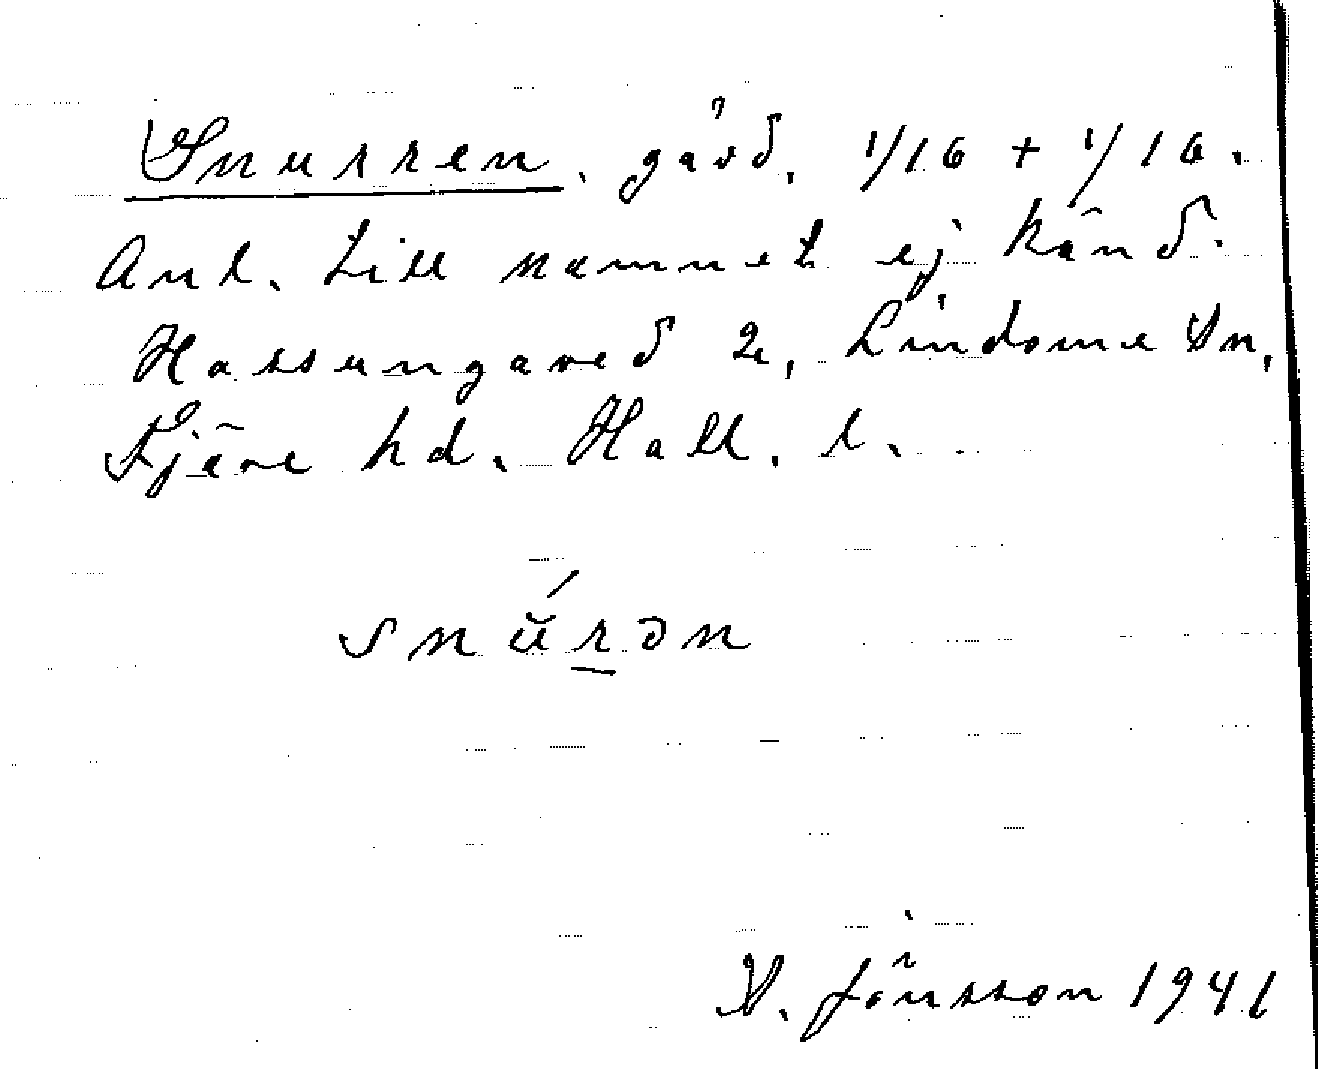 Snurren. gård, 1/16 + 1/16.
Anl. till namnet ej känd.
Hassungared 2, Lindome Sn,
Fjäre hd. Hall. l.
snúrən
V. Jönsson 1941